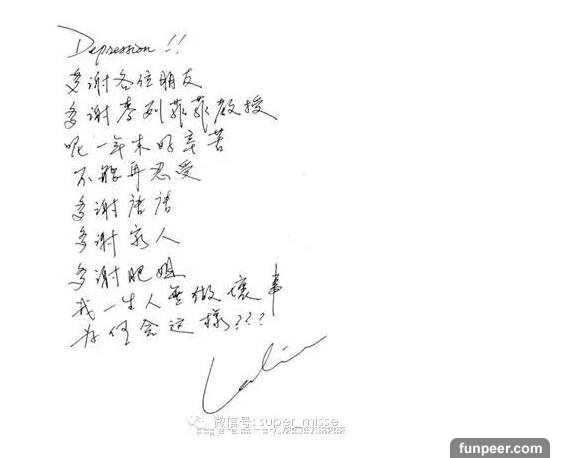 Depression !!
多谢各位朋友
多谢李列菲菲教授
呢一年来好辛苦
不能再忍受
多谢唐唐
多谢家人
多谢肥姐
我一生人无做壞事
为何会这樣???
Leslie
微信号: super_misse
funpeer.com